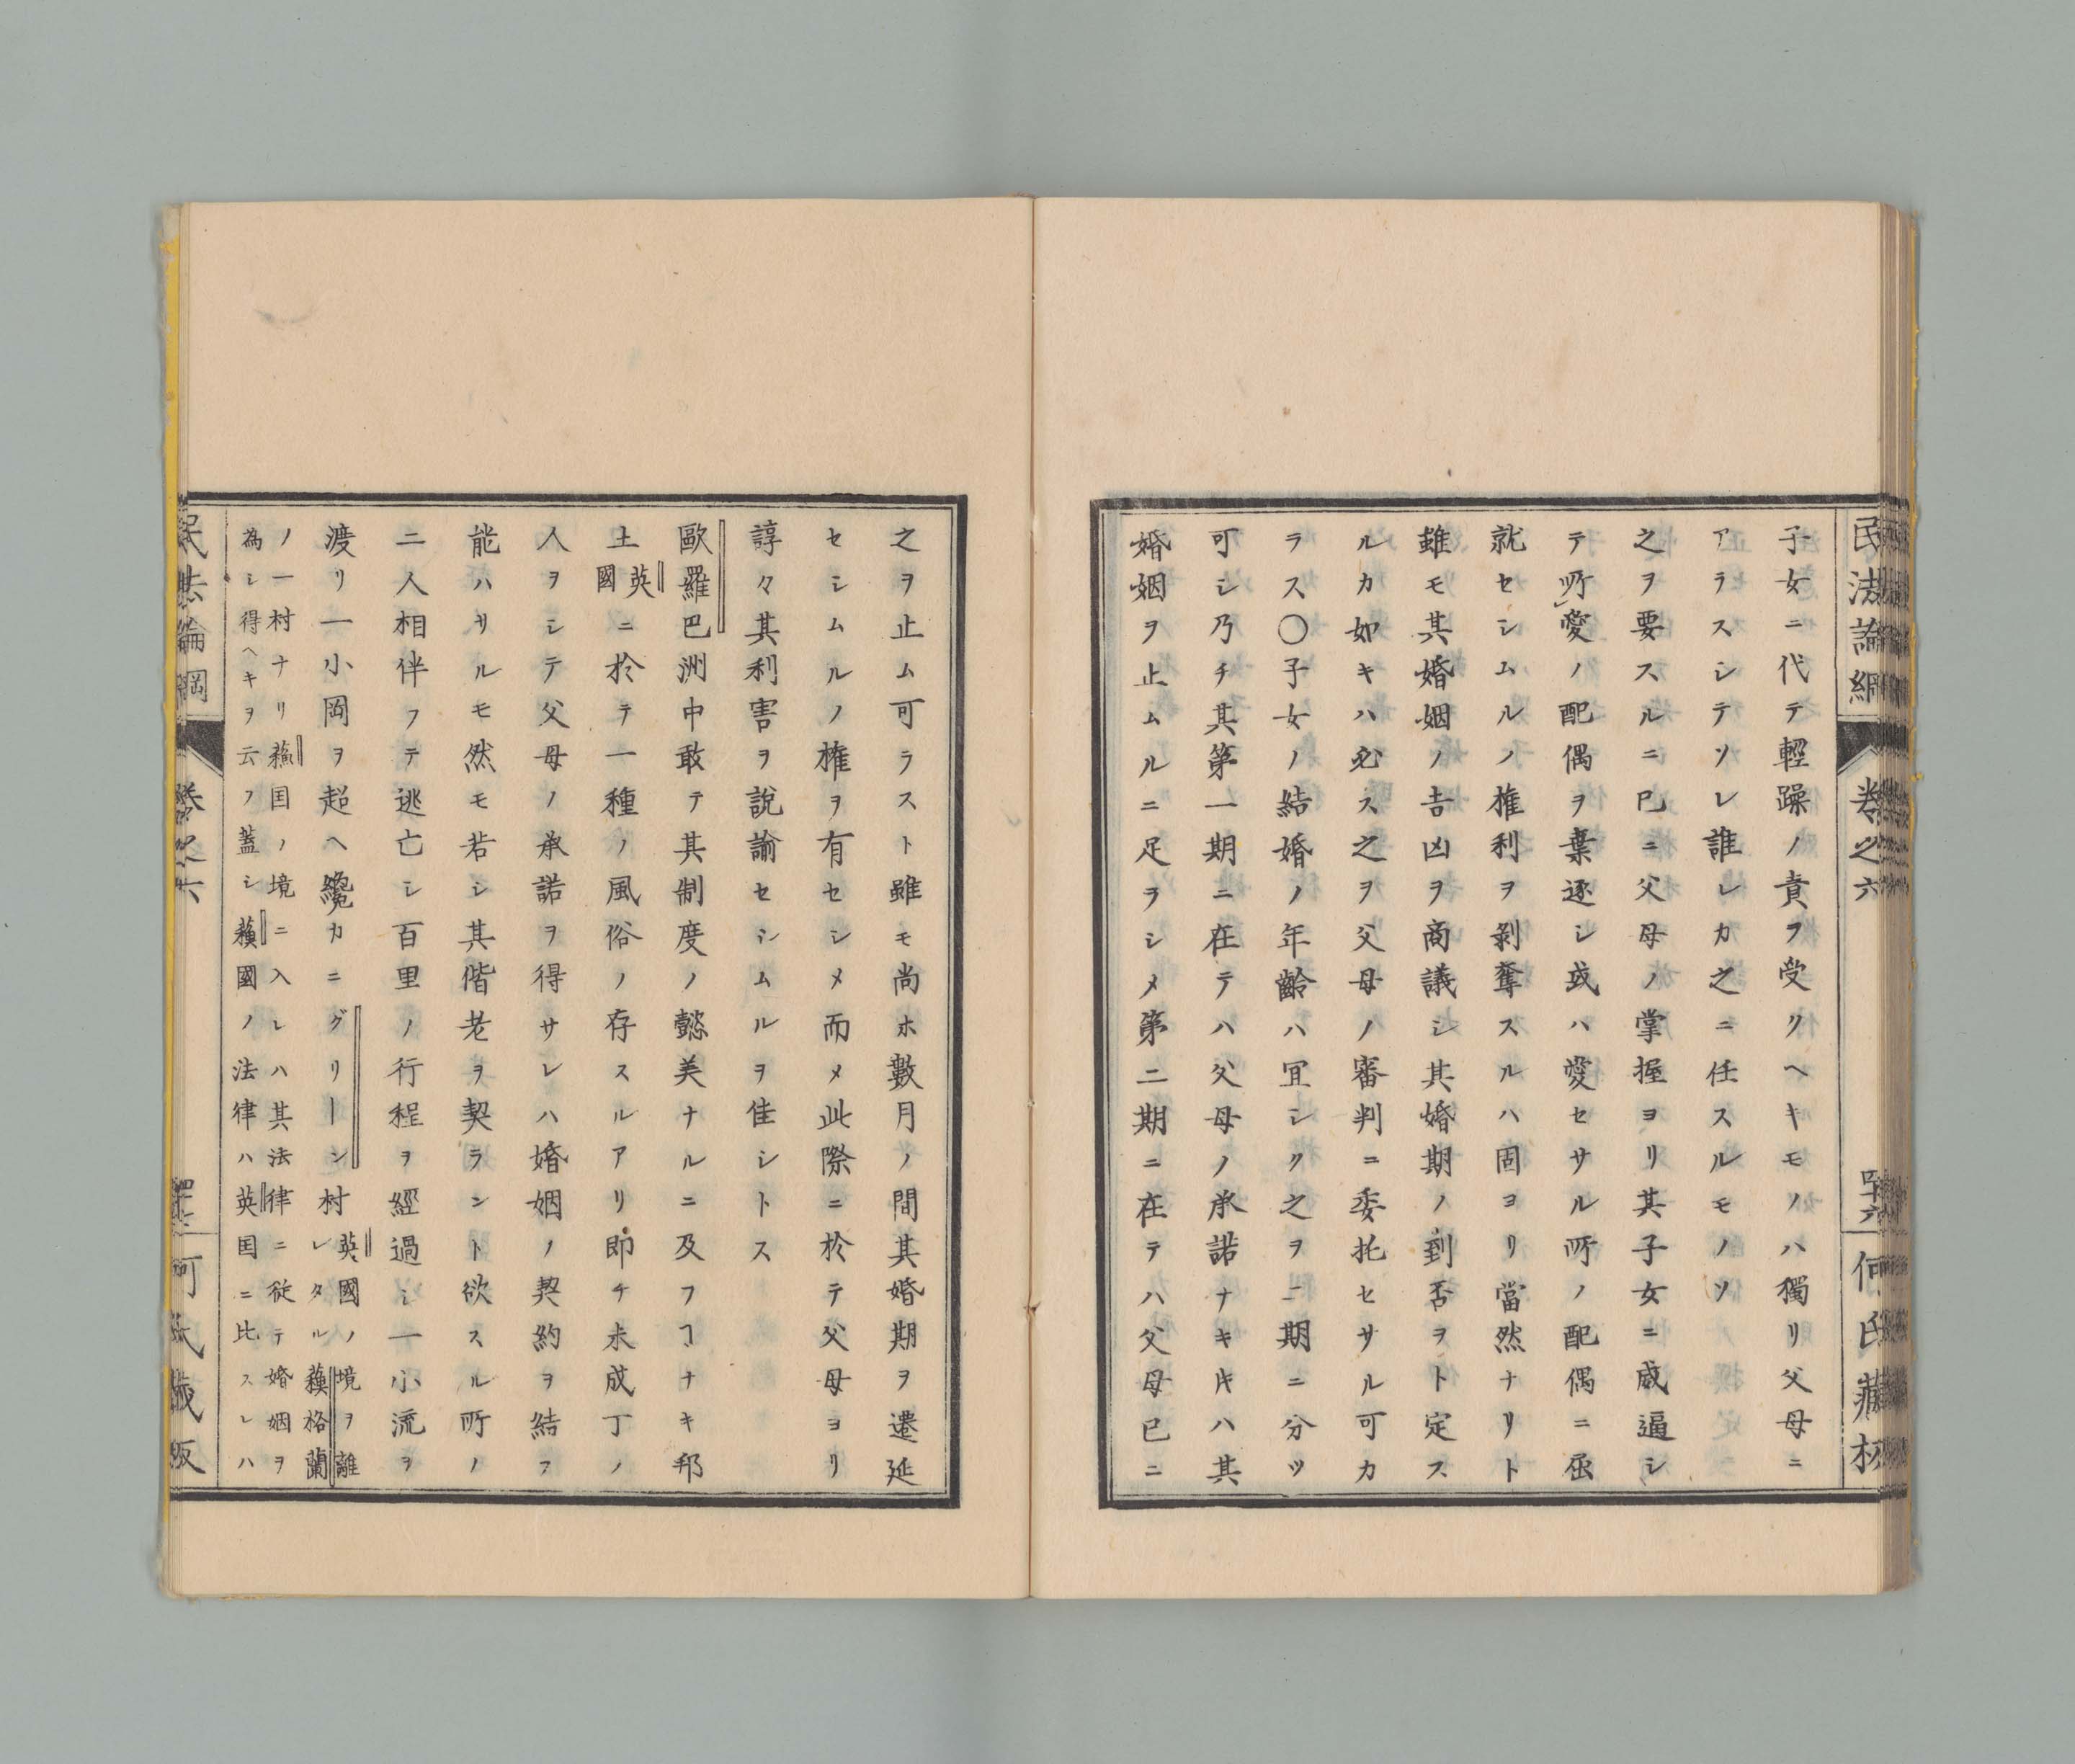 民法論綱 卷之六 四十六 何氏藏板
子女ニ代テ輕躁ノ責ヲ受クヘキモノハ獨リ父母ニ
アラスシテソレ誰レカ之ニ任スルモノソ
之ヲ要スルニ已ニ父母ノ掌握ヨリ其子女ニ威逼シ
テ所愛ノ配偶ヲ棄逐シ或ハ愛セサル所ノ配偶ニ屈
就セシムルノ権利ヲ剝奪スルハ固ヨリ當然ナリト
雖モ其婚姻ノ吉凶ヲ商議シ其婚期ノ到否ヲト定ス
ルカ如キハ必ス之ヲ父母ノ審判ニ委托セサル可カ
ラス〇子女ノ結婚ノ年齡ハ冝シク之ヲ二期ニ分ツ
可シ乃チ其第一期ニ在テハ父母ノ承諾ナキ𪜈ハ其
婚姻ヲ止ムルニ足ラシメ第二期ニ在テハ父母已ニ
之ヲ止ム可ラスト雖モ尚ホ數月ノ間其婚期ヲ遷延
セシムルノ権ヲ有セシメ而メ此際ニ於テ父母ヨリ
諄々其利害ヲ說諭セシムルヲ佳シトス
歐羅巴洲中敢テ其制度ノ懿美ナルニ及フヿナキ邦
土英國ニ於テ一種ノ風俗ノ存スルアリ即チ未成丁ノ
人ヲシテ父母ノ承諾ヲ得サレハ婚姻ノ契約ヲ結フ
能ハサルモ然モ若シ其偕老ヲ契ラント欲スル所ノ
二人相伴フテ逃亡シ百里ノ行程ヲ經過シ一小流ヲ
渡リ一小岡ヲ超ヘ纔カニグリーン村英國ノ境ヲ離レタル蘓格蘭
ノ一村ナリ蘓国ノ境ニ入レハ其法律ニ従テ婚姻ヲ
為シ得ヘキヲ云フ蓋シ蘓國ノ法律ハ英国ニ比スレハ
民法論綱 卷之六 何氏藏版